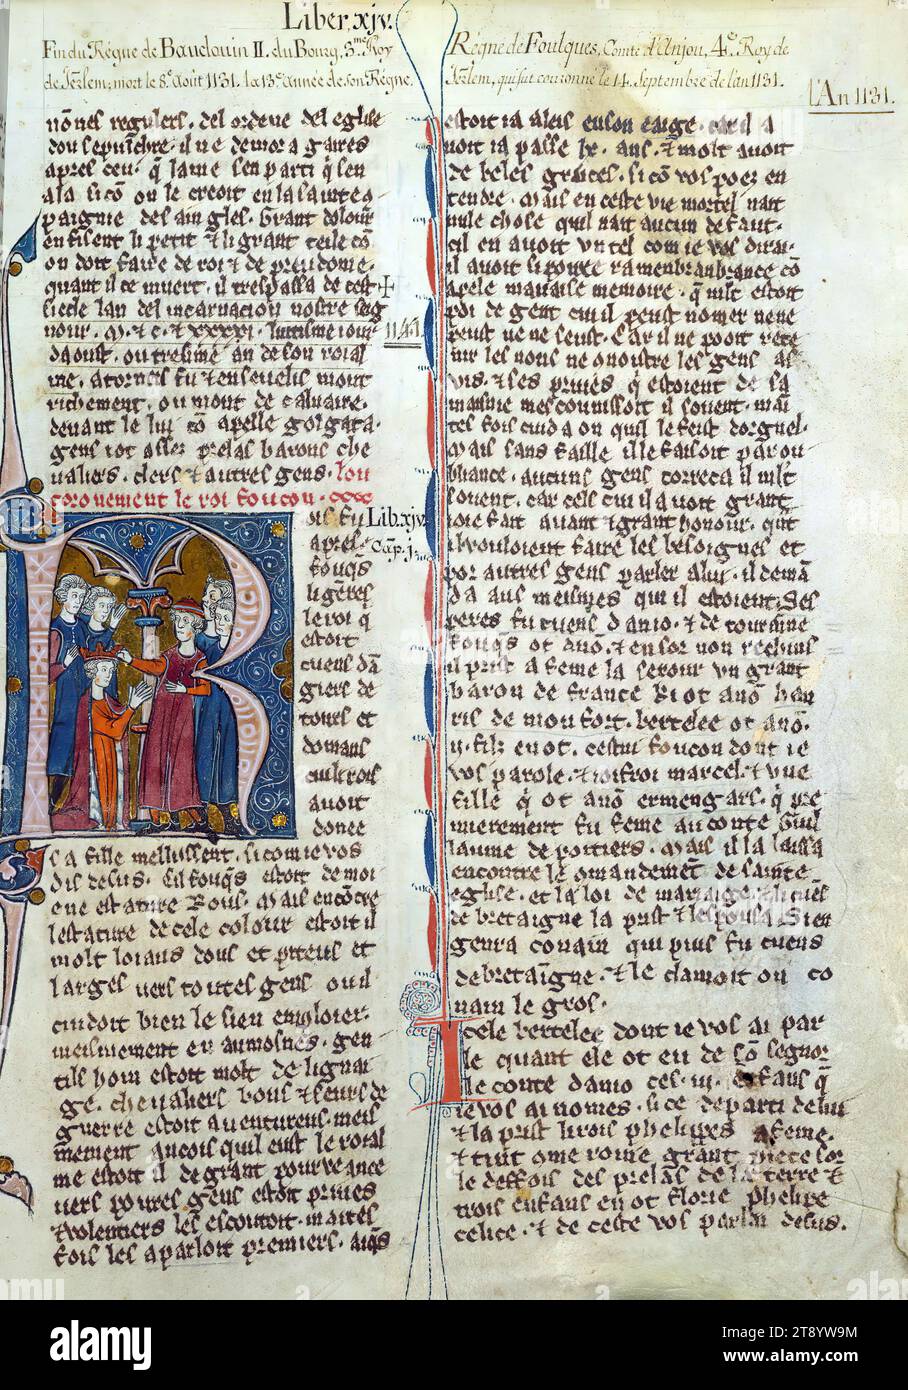 Liber. xiv.
Fin du Régne de Baudouin II. du Bourg, 3.me Roy
de Jerlem; mort le 8.e Août 1131. la 13.e Année de son Régne.
Régne de Foulques, Comte d'Anjou, 4.e Roy de
Jerlem, qui fut couronné le 14. Septembre de l'an 1131.
l'An 1131.
nones regulers. del ordene del eglise
dou sepulcre. il ne demora gaires
apres ceu. q̃ lame sen parti q̃ sen
ala si cõ on le creoit en la sainte cõ
paignie des aingles. Grant dolour
en fisent li petit & li grant tele cõ
on doit faire de roi & de preudome.
quant il se muert. il trespassa de cest
siecle lan del incarnacion nostre seg
nour. M. & c. & xxxxi.
1141.
daoust. ou tresime an de son roial
me. atornes fu & ensevelis mout
richement. ou mont de calvaire.
devant le liu cõ apelle golgata.
gens tot
prelas barons che
valiers. clers & autres gens. lou
coronement le roi foucon.
ois fu
Lib. xiv.
Cap. j.
apres
fouqs
ligẽres
le roi q
estoit
cuens dã
giers de
tours et
dou mans
cui li rois
avoit
donee
sa fille mellissent. si com ie vos
dis desus. Cil fouqs estoit de moi
ene estature Rous. Mais encõtre
lestature de cele colour estoit il
molt loiaus dous et piteus et
larges vers toutes gens ou il
cuidoit bien le sien emploier.
meismement en aumosnes. gen
tils hom estoit molt de lignai
ge. chevaliers bons & seurs de
guerre estoit aventureus. meis
mement ancois quil eust le roial
me estoit il de grant pourveance
vers povres gens estoit prives
& volentiers les escoutoit. maites
fois les aparloit premiers. ains
estoit ia ales en son eaige. car il a
voit ia passe lx. ans. & molt avoit
de beles graces. si cõ vos poez en
tendre. Mais en ceste vie mortel nait
nule chose quil nait aucun defaut.
cil en avoit un tel com ie vos dirai.
il avoit si povre ramenbranbrance cõ
apele mauvaise memoire. q̃ mlt estoit
poi de gent cui il peust nomer ne ne
peust ne ne seust. Car il ne pooit rete
nir les nons ne conoistre les gens as
vis. & ses prives q̃ estoient de sa
maisnie mesconnissoit il sovent. mai
tes fois cuida on quil le feist dorguel.
Mais sans faille il le faisoit par ou
bliance. aucuns gens correca il mlt
sovent. car cels cui il avoit grant
ioie fait avant & grant honour. qñt
il vouloient faire les besoignes et
por autres gens parler a lui. il deman
da a aus meismes qui il estoient. Ses
peres fu cuens danio. & de touraine
fouqs ot anõ. & en sornon rechins
il prist a feme la serour un grant
baron de france ki ot anõ hau
ris de monfort. bertelee ot anõ.
ii. filz en ot. cestui foucon dont ie
vos parole. & ioifroi marcel. & une
fille q̃ ot anõ ermengars. q̃ pre
mierement fu feme au conte Guil
laume de poitiers. Mais il la laissa
encontre le cõmandemẽt de sainte
eglise. et la loi de mariaige. & li cuẽs
de bretaigne la prist & lespousa. Si en
genra conain qui puis fu cuens
de bretaĩgne. & le clamoit on co
nain le gros.
Icele bertelee dont ie vos ai par
le quant ele ot eu de sõ segnor
le conte danio ces. iii. enfans q̃
ie vos ai nomes. si se departi de lui
& la prist li rois phelippes a feme.
& tint cõme roine grant piece sor
le deffois des prelãs de la terre &
trois enfans en ot florie phelipe
celice. & de ceste vos parlai desus.
alamy
Image ID: 2T81YW9M
www.alamy.com